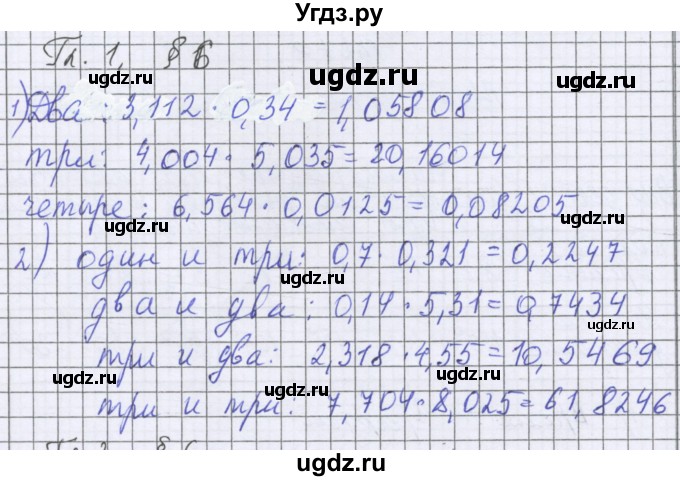 Угдз.ру
Гл. 1, § 6
1) Два: 3,112 · 0,34 = 1,05808
три: 4,004 · 5,035 = 20,16014
четыре: 6,564 · 0,0125 = 0,08205
2) один и три: 0,7 · 0,321 = 0,2247
два и два: 0,14 · 5,31 = 0,7434
три и два: 2,318 · 4,55 = 10,5469
три и три: 7,704 · 8,025 = 61,8246
ugdz.ru
ugdz.ru
ugdz.ru
ugdz.ru
ugdz.ru
ugdz.ru
ugdz.ru
ugdz.ru
ugdz.ru
ugdz.ru
ugdz.ru
ugdz.ru